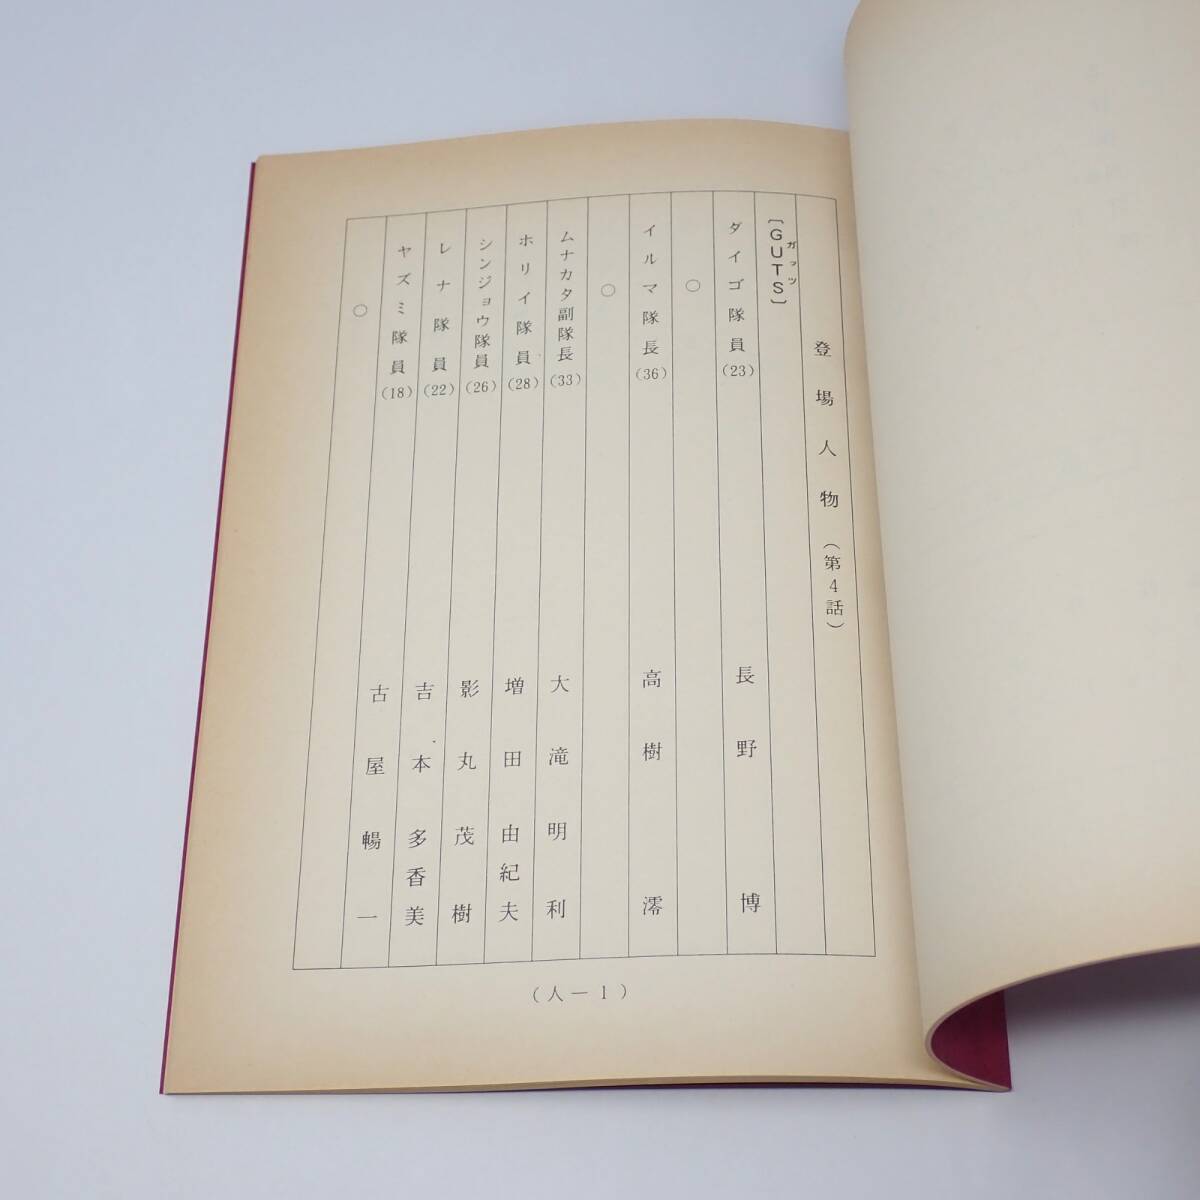 登場人物(第4話)
〔GUTS〕
ガッツ
ダイゴ隊員(23) 長野博
○
イルマ隊長(36) 高樹澪
○
ムナカタ副隊長(33) 大滝明利
ホリイ隊員(28) 増田由紀夫
シンジョウ隊員(26) 影丸茂樹
レナ隊員(22) 吉本多香美
ヤズミ隊員(18) 古屋暢一
○
(人―1)